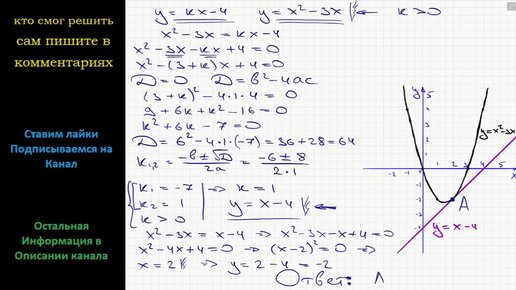 кто смог решить
сам пишите в
комментариях
Ставим лайки
Подписываемся на
Канал
Остальная
Информация в
Описании канала
y = kx-4 y = x²-3x k>0
x²-3x = kx-4
x²-3x-kx+4=0
x²-(3+k)x+4=0
D=0 D=b²-4ac
(3+k)²-4·1·4=0
9+6k+k²-16=0
k²+6k-7=0
D=6²-4·1·(-7)=36+28=64
k₁,₂ = (-b±√D)/2a = (-6±8)/(2·1)
k₁=-7 ⇒ k=1
k₂=1 y=x-4
k>0
x²-3x=x-4 ⇒ x²-3x-x+4=0
x²-4x+4=0 ⇒ (x-2)²=0 ⇒
x=2 ⇒ y=2-4=-2
Ответ:
y
5
4
3
2
1
-2 -1 0 1 2 3 4 5 x
-1
-2
-3
-4
y=x²-3x
A
y=x-4